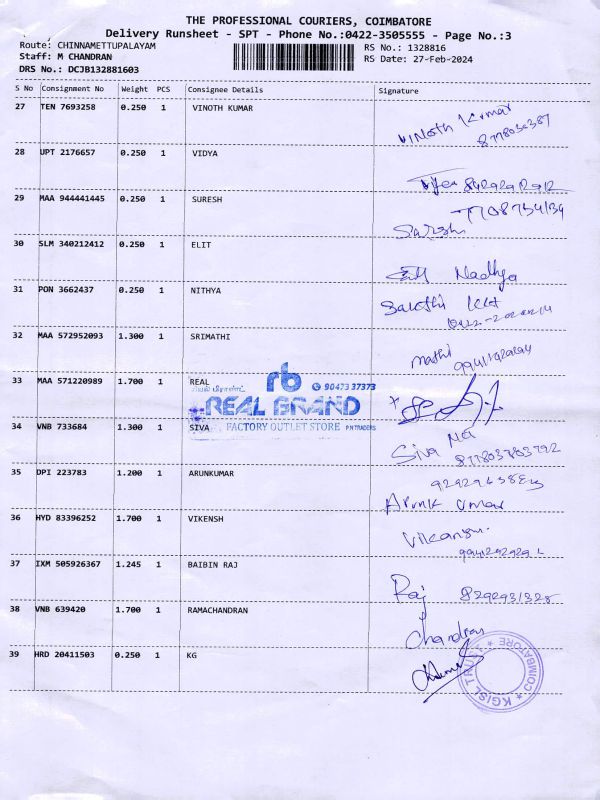 THE PROFESSIONAL COURIERS, COIMBATORE
Delivery Runsheet - SPT - Phone No.:0422-3505555 - Page No.:3
Route: CHINNAMETTUPALAYAM
RS No.: 1328816
Staff: M CHANDRAN
RS Date: 27-Feb-2024
DRS No.: DCJB132881603
S No Consignment No Weight PCS Consignee Details Signature
27 TEN 7693258 0.250 1 VINOTH KUMAR
Vinoth Kumar
28 UPT 2176657 0.250 1 VIDYA
29 MAA 944441445 0.250 1 SURESH
7708754134
30 SLM 340212412 0.250 1 ELIT
Nadhya
31 PON 3662437 0.250 1 NITHYA
Sakthi
32 MAA 572952093 1.300 1 SRIMATHI
mathi
33 MAA 571220989 1.700 1 REAL
rb
90473 37373
REAL GRAND
FACTORY OUTLET STORE P N TRADERS
34 VNB 733684 1.300 1 SIVA
Siva
35 DPI 223783 1.200 1 ARUNKUMAR
Arunk umar
36 HYD 83396252 1.700 1 VIKENSH
37 IXM 505926367 1.245 1 BAIBIN RAJ
Raj
38 VNB 639420 1.700 1 RAMACHANDRAN
Chandran
39 HRD 20411503 0.250 1 KG
KGISL TRUST * COIMBATORE *